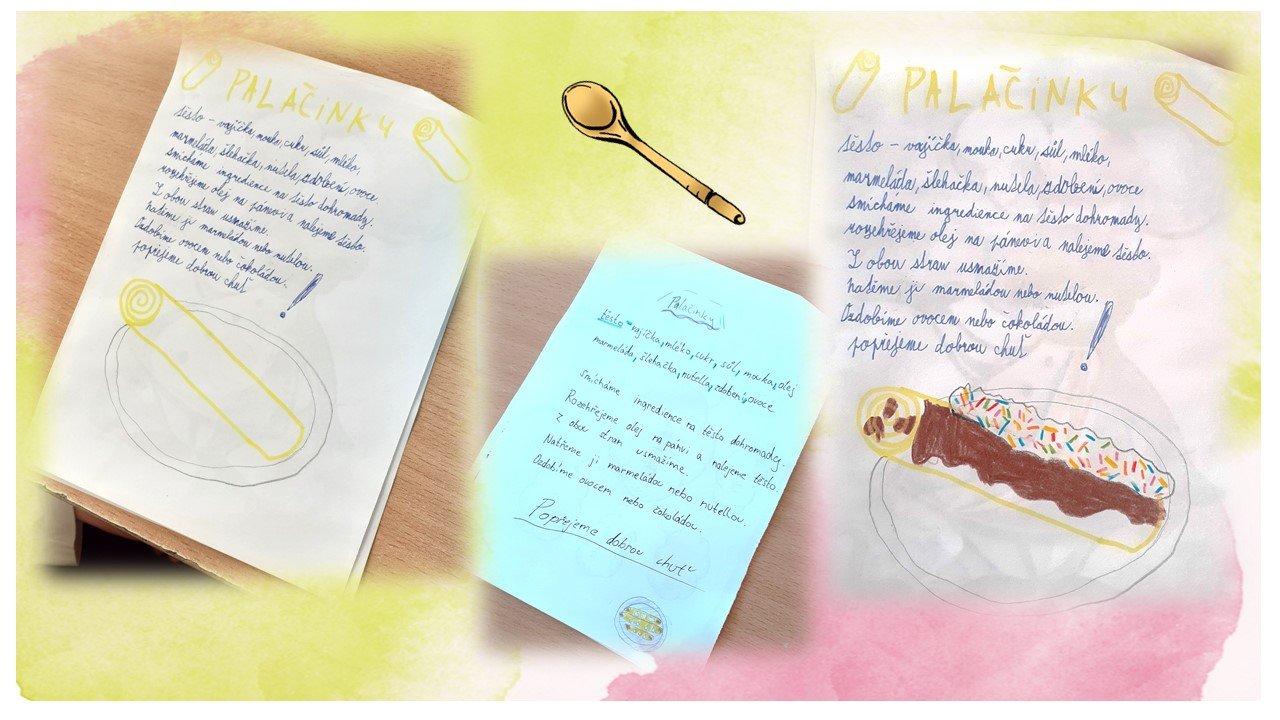 PALAČINKY
těsto - vajíčka, mouka, cukr, sůl, mléko,
marmeláda, šlehačka, nutela, zdobení, ovoce
smícháme ingredience na těsto dohromady.
rozehřejeme olej na pánvi a nalejeme těsto.
Z obou stran usmažíme.
natřeme ji marmeládou nebo nutelou.
Ozdobíme ovocem nebo čokoládou.
popřejeme dobrou chuť!
Palačinky
těsto - vajíčka, mléko, cukr, sůl, mouka, olej
marmeláda, šlehačka, nutella, zdobení, ovoce
Smícháme ingredience na těsto dohromady.
Rozehřejeme olej na pánvi a nalejeme těsto.
z obou stran usmažíme.
Natřeme ji marmeládou nebo nutellou.
Ozdobíme ovocem nebo čokoládou.
Popřejeme dobrou chuť
PALAČINKY
těsto - vajíčka, mouka, cukr, sůl, mléko,
marmeláda, šlehačka, nutela, zdobení, ovoce
smícháme ingredience na těsto dohromady.
rozehřejeme olej na pánvi a nalejeme těsto.
Z obou stran usmažíme.
natřeme ji marmeládou nebo nutelou.
Ozdobíme ovocem nebo čokoládou.
popřejeme dobrou chuť!